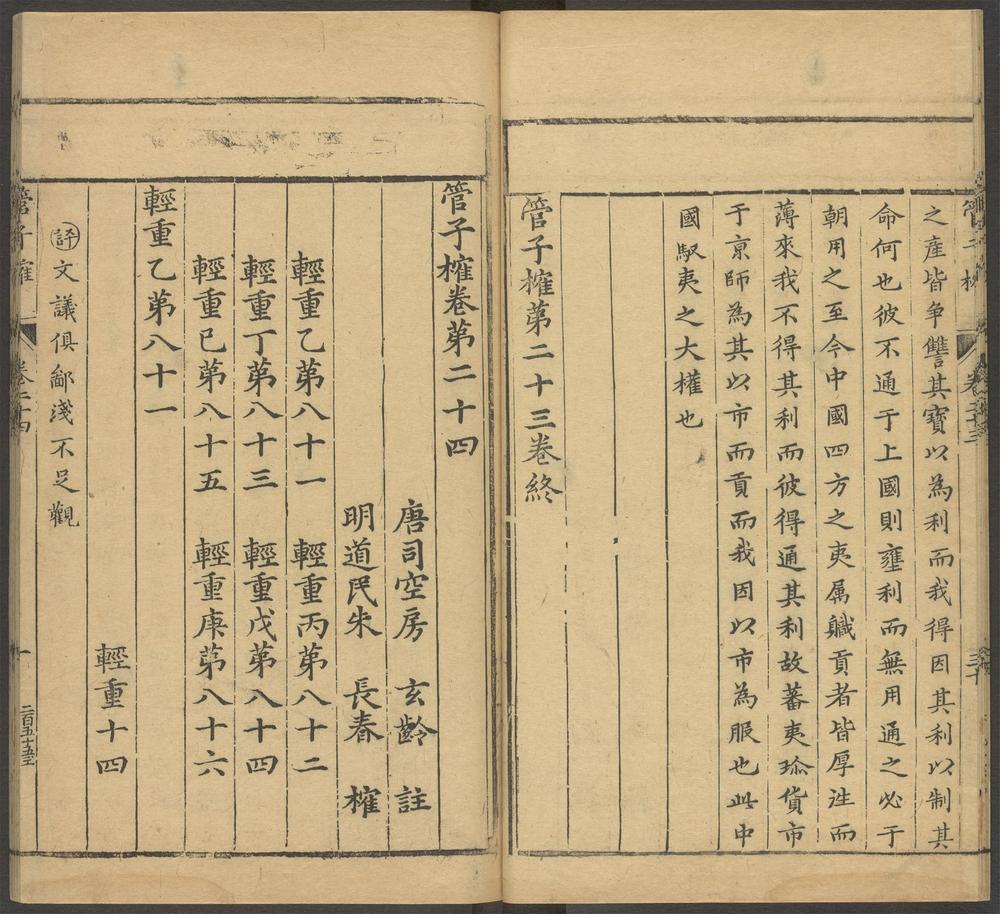 之產皆争讐其寶以為利而我得因其利以制其
命何也彼不通于上國則壅利而無用通之必于
朝用之至今中國四方之夷属軄貢者皆厚迯而
薄來我不得其利而彼得通其利故蕃夷珎貨市
于京師為其以市而貢而我因以市為服也此中
國馭夷之大權也
管子榷第二十三卷終
管子榷卷第二十四
唐司空房 玄齡 註
明道民朱 長春 榷
輕重乙第八十一 輕重丙第八十二
輕重丁第八十三 輕重戊第八十四
輕重已第八十五 輕重庚第八十六
輕重乙第八十一
輕重十四
評文議俱鄙淺不足觀
管子榷 卷二十四 一